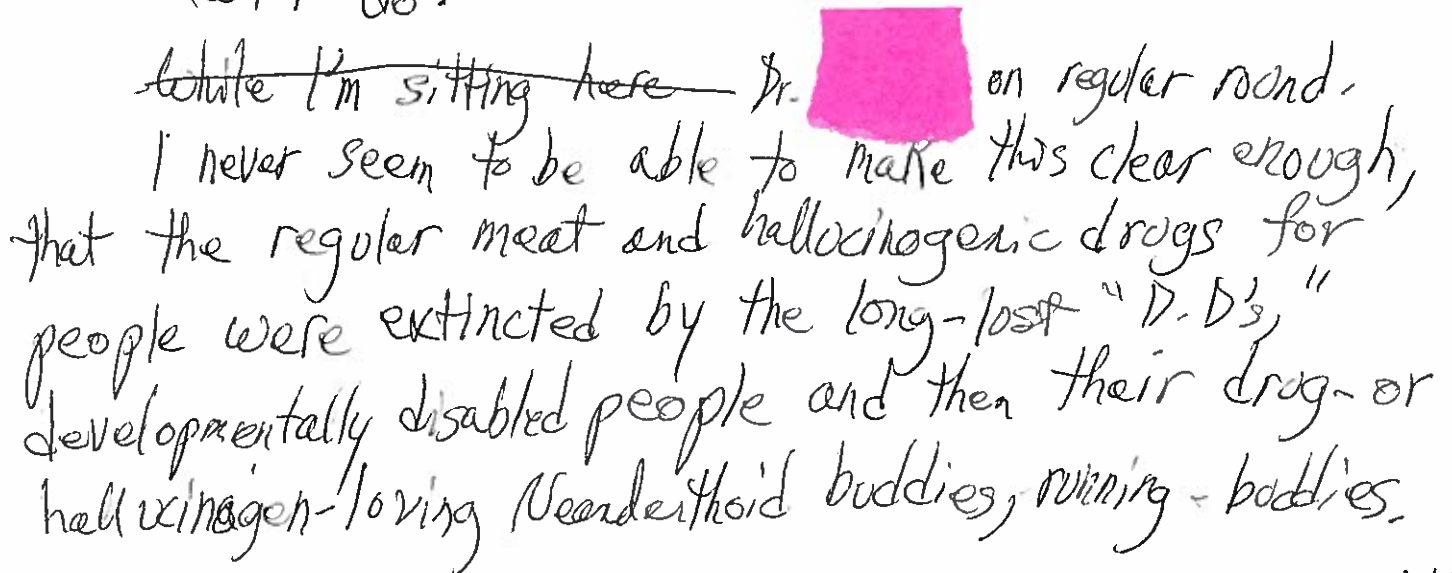 While I'm sitting here Dr. on regular round.
I never seem to be able to make this clear enough,
that the regular meat and hallucinogenic drugs for
people were extincted by the long-lost "D.D's,"
developmentally disabled people and then their drug- or
hallucinogen-loving Neanderthoid buddies, running-buddies.